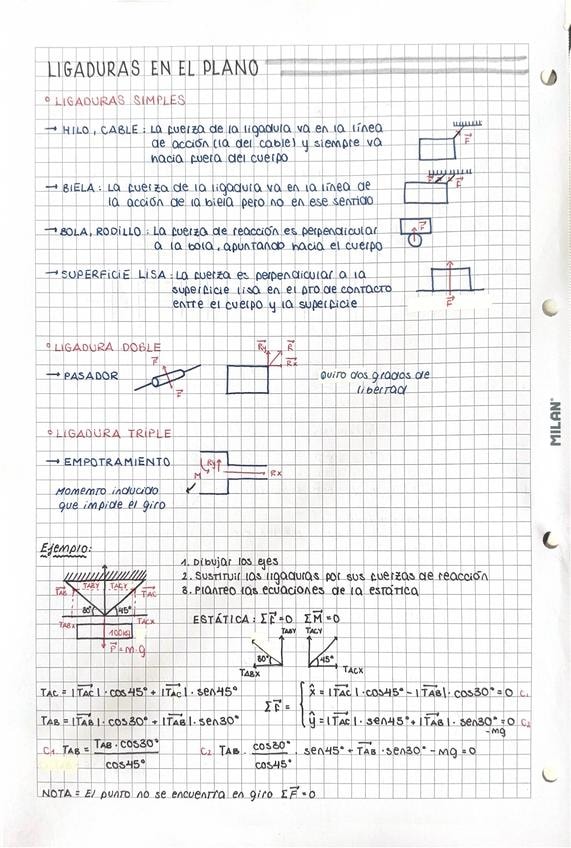 LIGADURAS EN EL PLANO
° LIGADURAS SIMPLES
→ HILO, CABLE : La fuerza de la ligadura va en la línea
de acción (la del cable) y siempre va
hacia fuera del cuerpo
F
→ BIELA : La fuerza de la ligadura va en la línea de
la acción de la biela pero no en ese sentido
F F
→ BOLA, RODILLO : La fuerza de reacción es perpendicular
a la bola, apuntando hacia el cuerpo
F
→ SUPERFICIE LISA : La fuerza es perpendicular a la
superficie lisa en el pto de contacto
entre el cuerpo y la superficie
F
° LIGADURA DOBLE
→ PASADOR
F
F
Ry R
Rx
quito dos grados de
libertad
° LIGADURA TRIPLE
→ EMPOTRAMIENTO
M Ry Rx
Momento inducido
que impide el giro
Ejemplo:
1. Dibujar los ejes
2. Sustituir las ligaduras por sus fuerzas de reacción
3. Planteo las ecuaciones de la estática
TABY TACY
TAB TAC
45°
TABX TACX
100KG
P = m·g
ESTÁTICA : ΣF=0 ΣM=0
TABY TACY
45°
TABX TACX
TAC = |TAC| · cos45° + |TAC| · sen45°
TAB = |TAB| · cos30° + |TAB| · sen30°
ΣF =
x̂ = |TAC| · cos45° - |TAB| · cos30° = 0 C₁
ŷ = |TAC| · sen45° + |TAB| · sen30° = 0 C₂
-mg
C₁ TAB = TAB · cos30° / cos45°
C₂ TAB · cos30° / cos45° · sen45° + TAB · sen30° - mg = 0
NOTA = El punto no se encuentra en giro ΣF = 0
MILAN